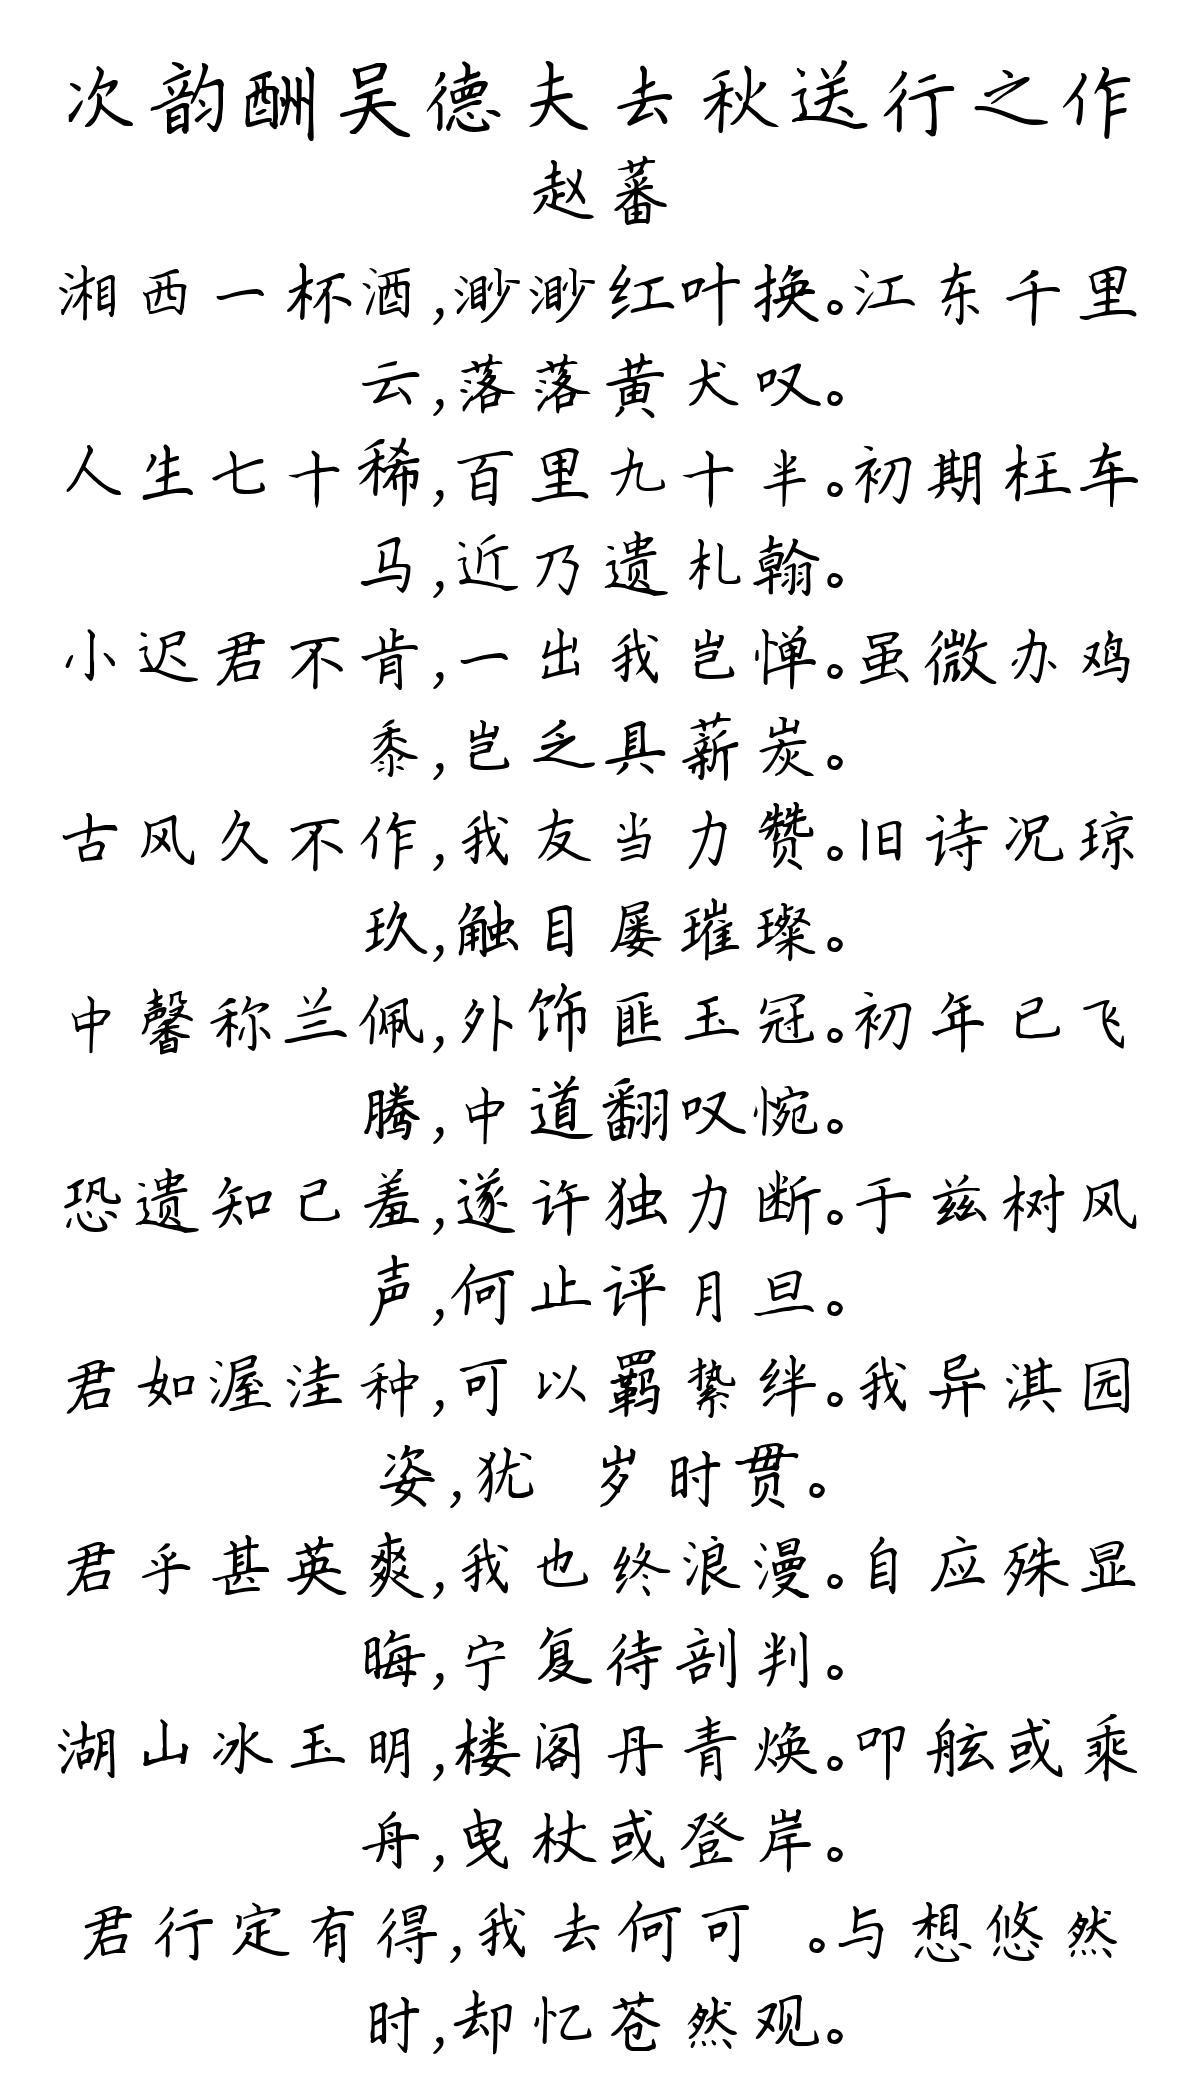 次韵酬吴德夫去秋送行之作
赵蕃
湘西一杯酒,渺渺红叶换。江东千里
云,落落黄犬叹。
人生七十稀,百里九十半。初期枉车
马,近乃遗札翰。
小迟君不肯,一出我岂惮。虽微办鸡
黍,岂乏具薪炭。
古风久不作,我友当力赞。旧诗况琼
玖,触目屡璀璨。
中馨称兰佩,外饰匪玉冠。初年已飞
腾,中道翻叹惋。
恐遗知己羞,遂许独力断。于兹树风
声,何止评月旦。
君如渥洼种,可以羁絷绊。我异淇园
姿,犹 岁时贯。
君乎甚英爽,我也终浪漫。自应殊显
晦,宁复待剖判。
湖山冰玉明,楼阁丹青焕。叩舷或乘
舟,曳杖或登岸。
君行定有得,我去何可 。与想悠然
时,却忆苍然观。